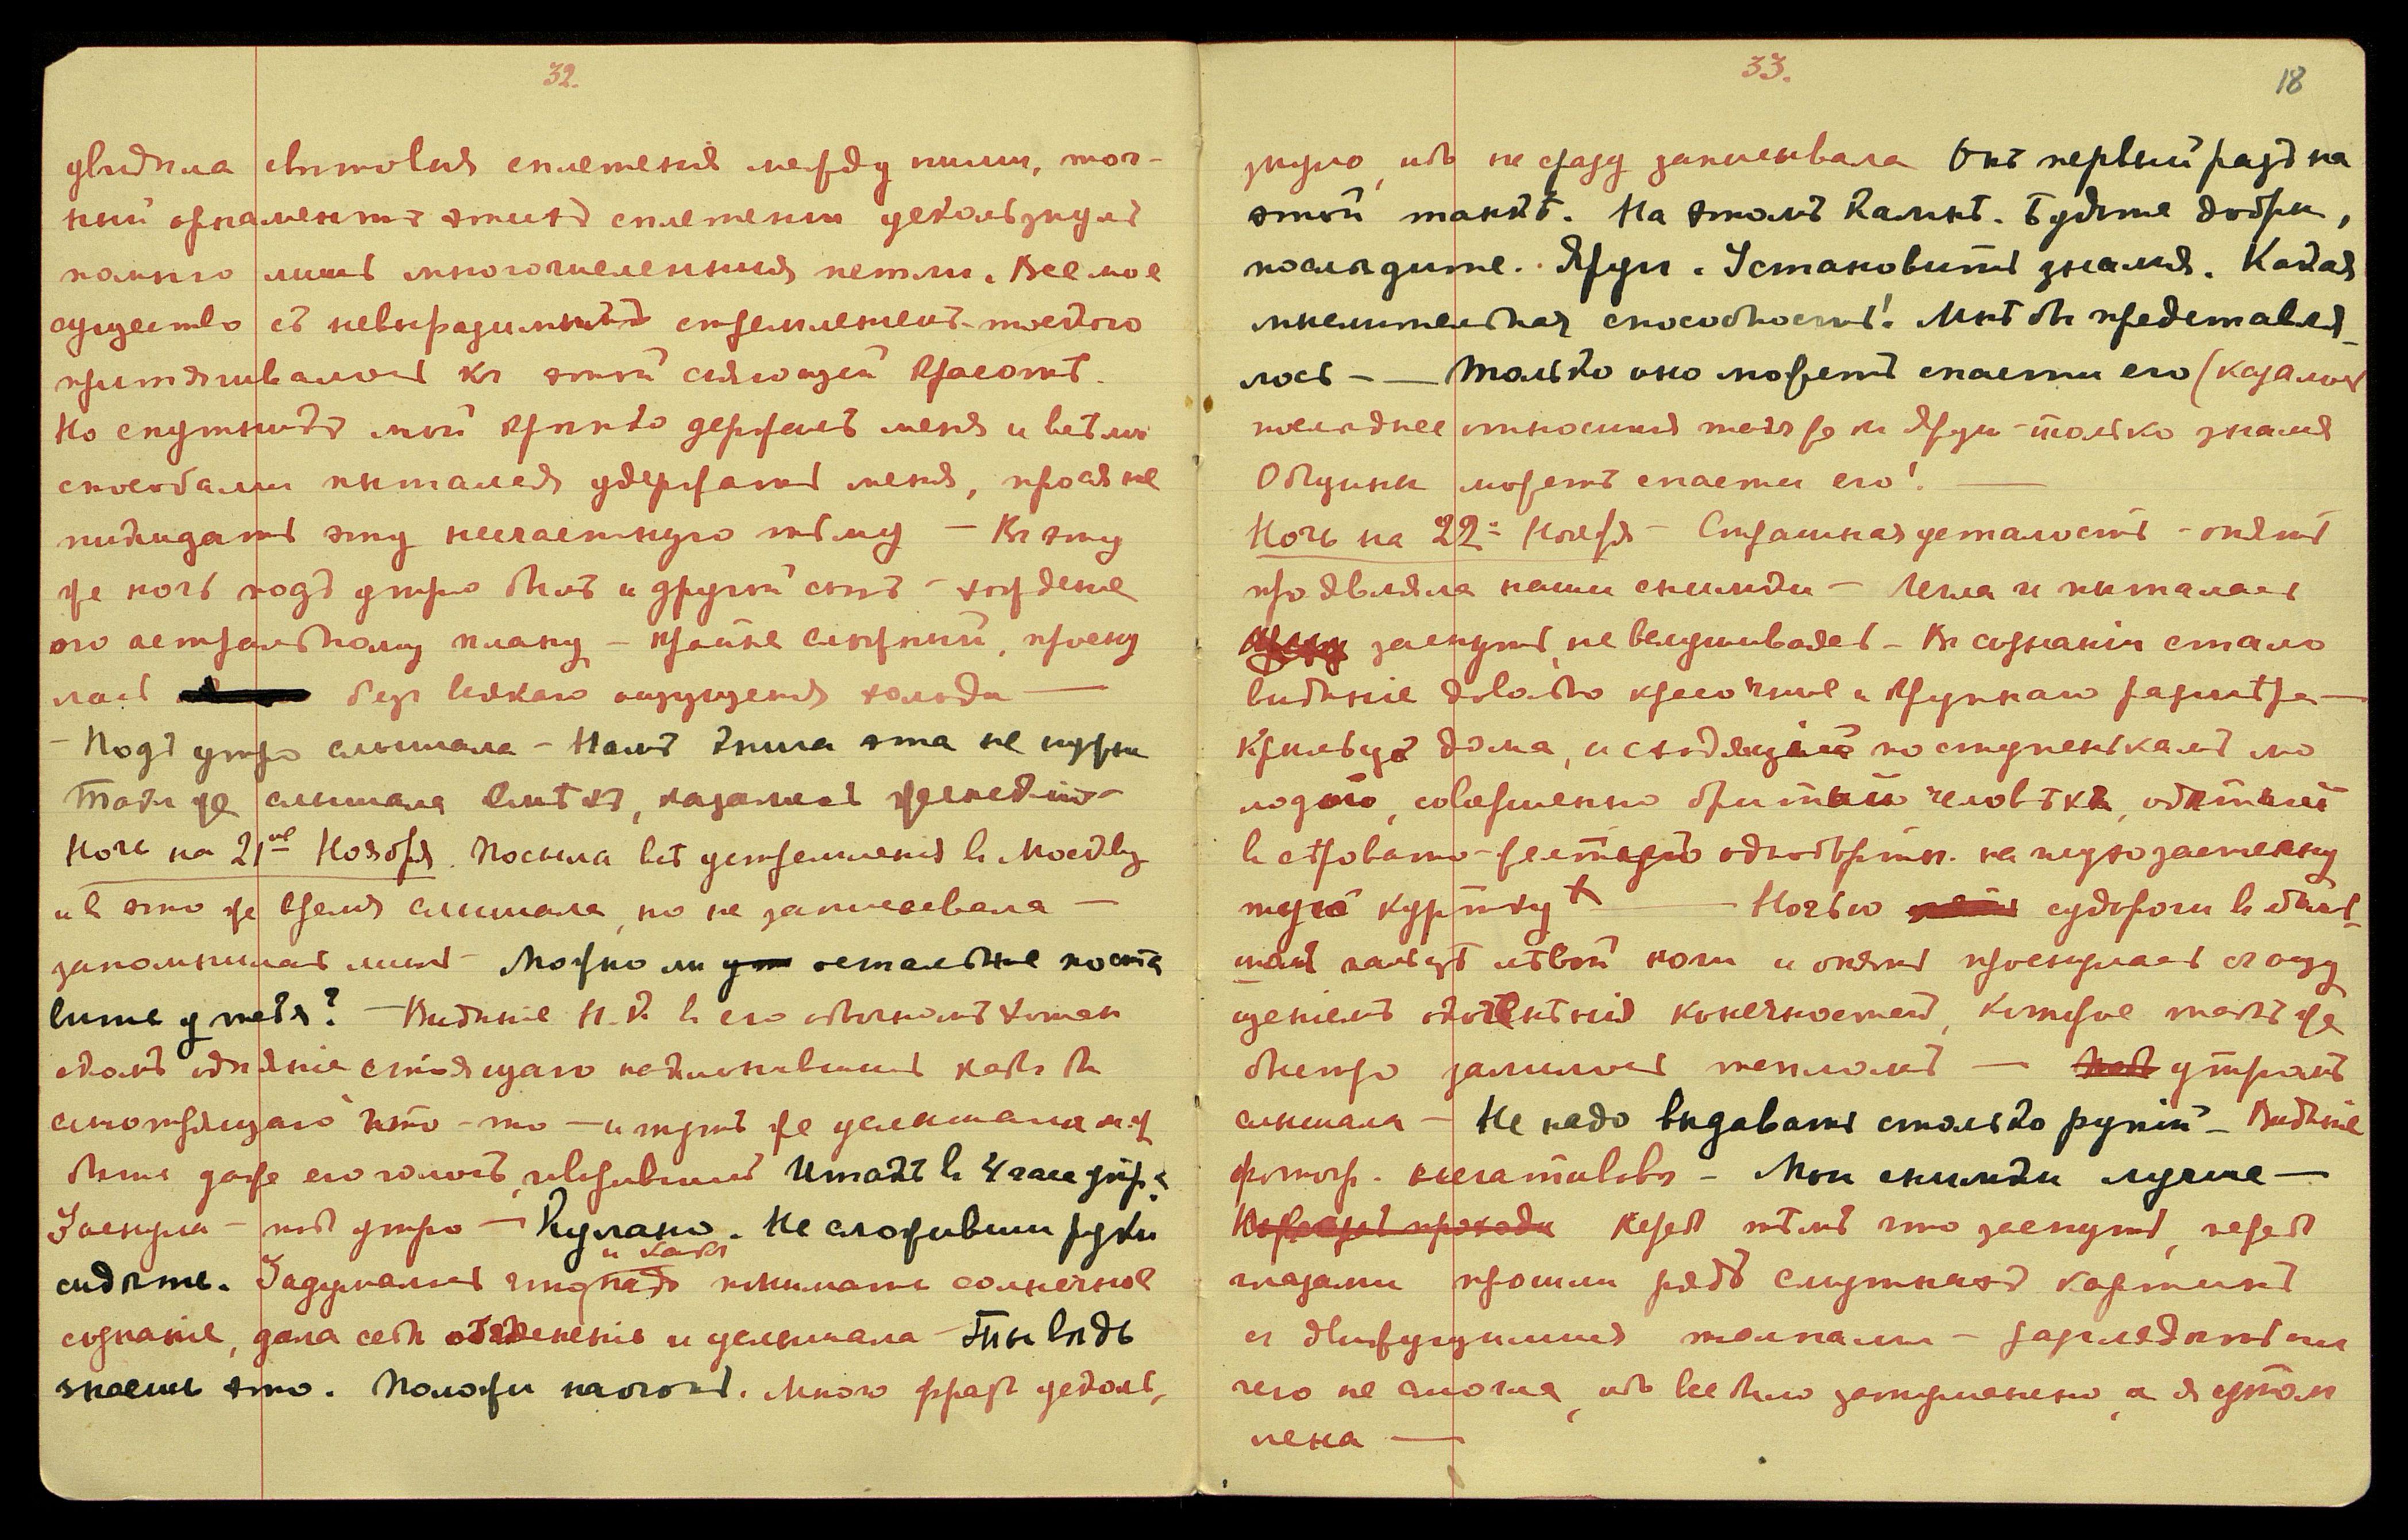 32.
увидѣла свѣтовыя сплетенія между ними, точ-
ный орнаментъ этихъ сплетеній ускользнулъ
помню лишь многочисленныя петли. Все мое
существо съ невыразимымъ стремленіемъ-тоскою
притягивалось къ этой сіяющей красотѣ.
Но спутникъ мой крѣпко держалъ меня и всѣми
способами пытался удержать меня, прося не
покидать эту несчастную тьму — Въ эту
же ночь подъ утро былъ и другой сонъ — хожденіе
по астральному плану — крайне сложный, просну
лась без всякаго ощущенія холода —
— Подъ утро слышала — Намъ книга эта не нужна
Также слышала смѣхъ, казалось женскій —
Ночь на 21ое Ноября. Посыла всѣ устремленія в Москву
и в это же время слышала, но не записывала —
запомнилась лишь — Можно ли остальные поста
вить у тебя? — Видѣніе Н.К. в его обычномъ
одѣяніе стоящаго наклонившись какъ бы
смотрящаго что-то — и тутъ же услышала м.
быть даже его голосъ, говорившій Итакъ в 4 часа утра.
Заснула — подъ утро — Кулано. Не сложивши руки
сидѣть. Задумалась что надо
и какъ
понимать солнечное
сознаніе, дала себѣ объясненіе и услышала — Ты вѣдь
знаешь это. Положи на огонь. Много фразъ усколь-
33.
18
знуло, ибо не сразу записывала Онъ первый разъ на
этой танкѣ. На этомъ Камнѣ. Будьте добры,
послѣдите. Яруи. Установить знамя. Какая
мыслительная способность! Мнѣ бы представля-
лось — — Только оно можетъ спасти его (казалось
послѣднее относится также къ Яруи — только знамя
Общины можетъ спасти его! —
Ночь на 22е Ноября — Страшная усталость — опять
проявляла наши снимки — Легла и пыталась
заснуть, не вслушиваясь — Въ сознаніи стало
видѣніе довольно красочное и крупнаго размѣра —
Крыльцо дома, и сходящій по ступенькамъ мо
лодой, совершенно бритый человѣкъ, одѣтый
в сѣровато-желтую однобортн. на глухо застегну
тую куртку + — Ночью судороги в боль-
шомъ пальцѣ лѣвой ноги и опять проснулась съ ощу
щеніемъ окоченѣнія конечностей, которые также
быстро залились тепломъ — утромъ
слышала — Не надо выдавать столько рупій — Видѣніе
фотогр. негативовъ — Мои снимки лучше —
Передъ тѣмъ что заснуть, передъ
глазами прошли рядъ смутныхъ картинъ
съ движущимися толпами — разглядѣть ни
чего не смогла, ибо все было затуманено, а я утом
лена —